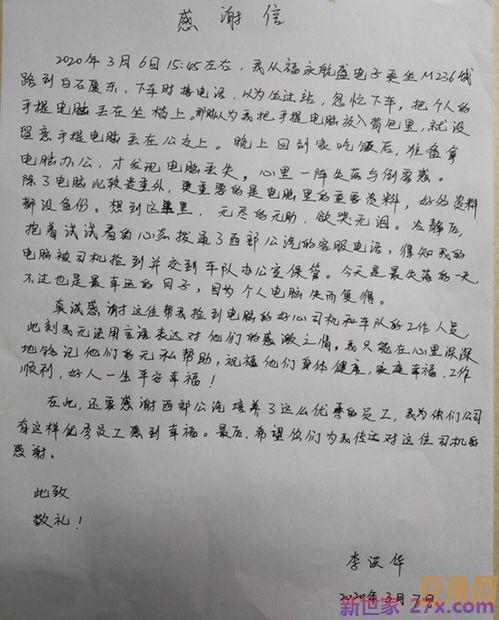 感谢信
2020年3月6日15:45左右，我从福永航盛电子乘坐M236线
路到白石厦东，下车时接电话，以为坐过站，匆忙下车，把个人的
手提电脑丢在坐椅上。那时以为我把手提电脑放入背包里，就没
留意手提电脑丢在公交上。晚上回到家吃饭后，准备拿
电脑办公，才发现电脑丢失。心里一阵失落与倒霉感。
除了电脑比较贵重外，更重要的是电脑里的重要资料，好的资料
都没备份。想到这里，无尽的无助，欲哭无泪。冷静后，
抱着试试看的心态拨通了西部公汽的客服电话，得知我的
电脑被司机捡到并交到车队办公室保管。今天是最失落的一天，
不过也是最幸运的日子，因为个人电脑失而复得。
真诚感谢这位帮我捡到电脑的好心司机和车队的工作人员
此刻我无法用言语表达对他们的感激之情。我只能在心里深深
地铭记他们的无私帮助，祝福他们身体健康，家庭幸福，工作
顺利，好人一生平安幸福！
在此，还要感谢西部公汽培养了这么优秀的员工，我为你们公司
有这样优秀员工感到幸福。最后，希望你们为我传达对这位司机的
感谢。
此致
敬礼！
李 华
2020年3月7日
豆角网
新世家 27x.com